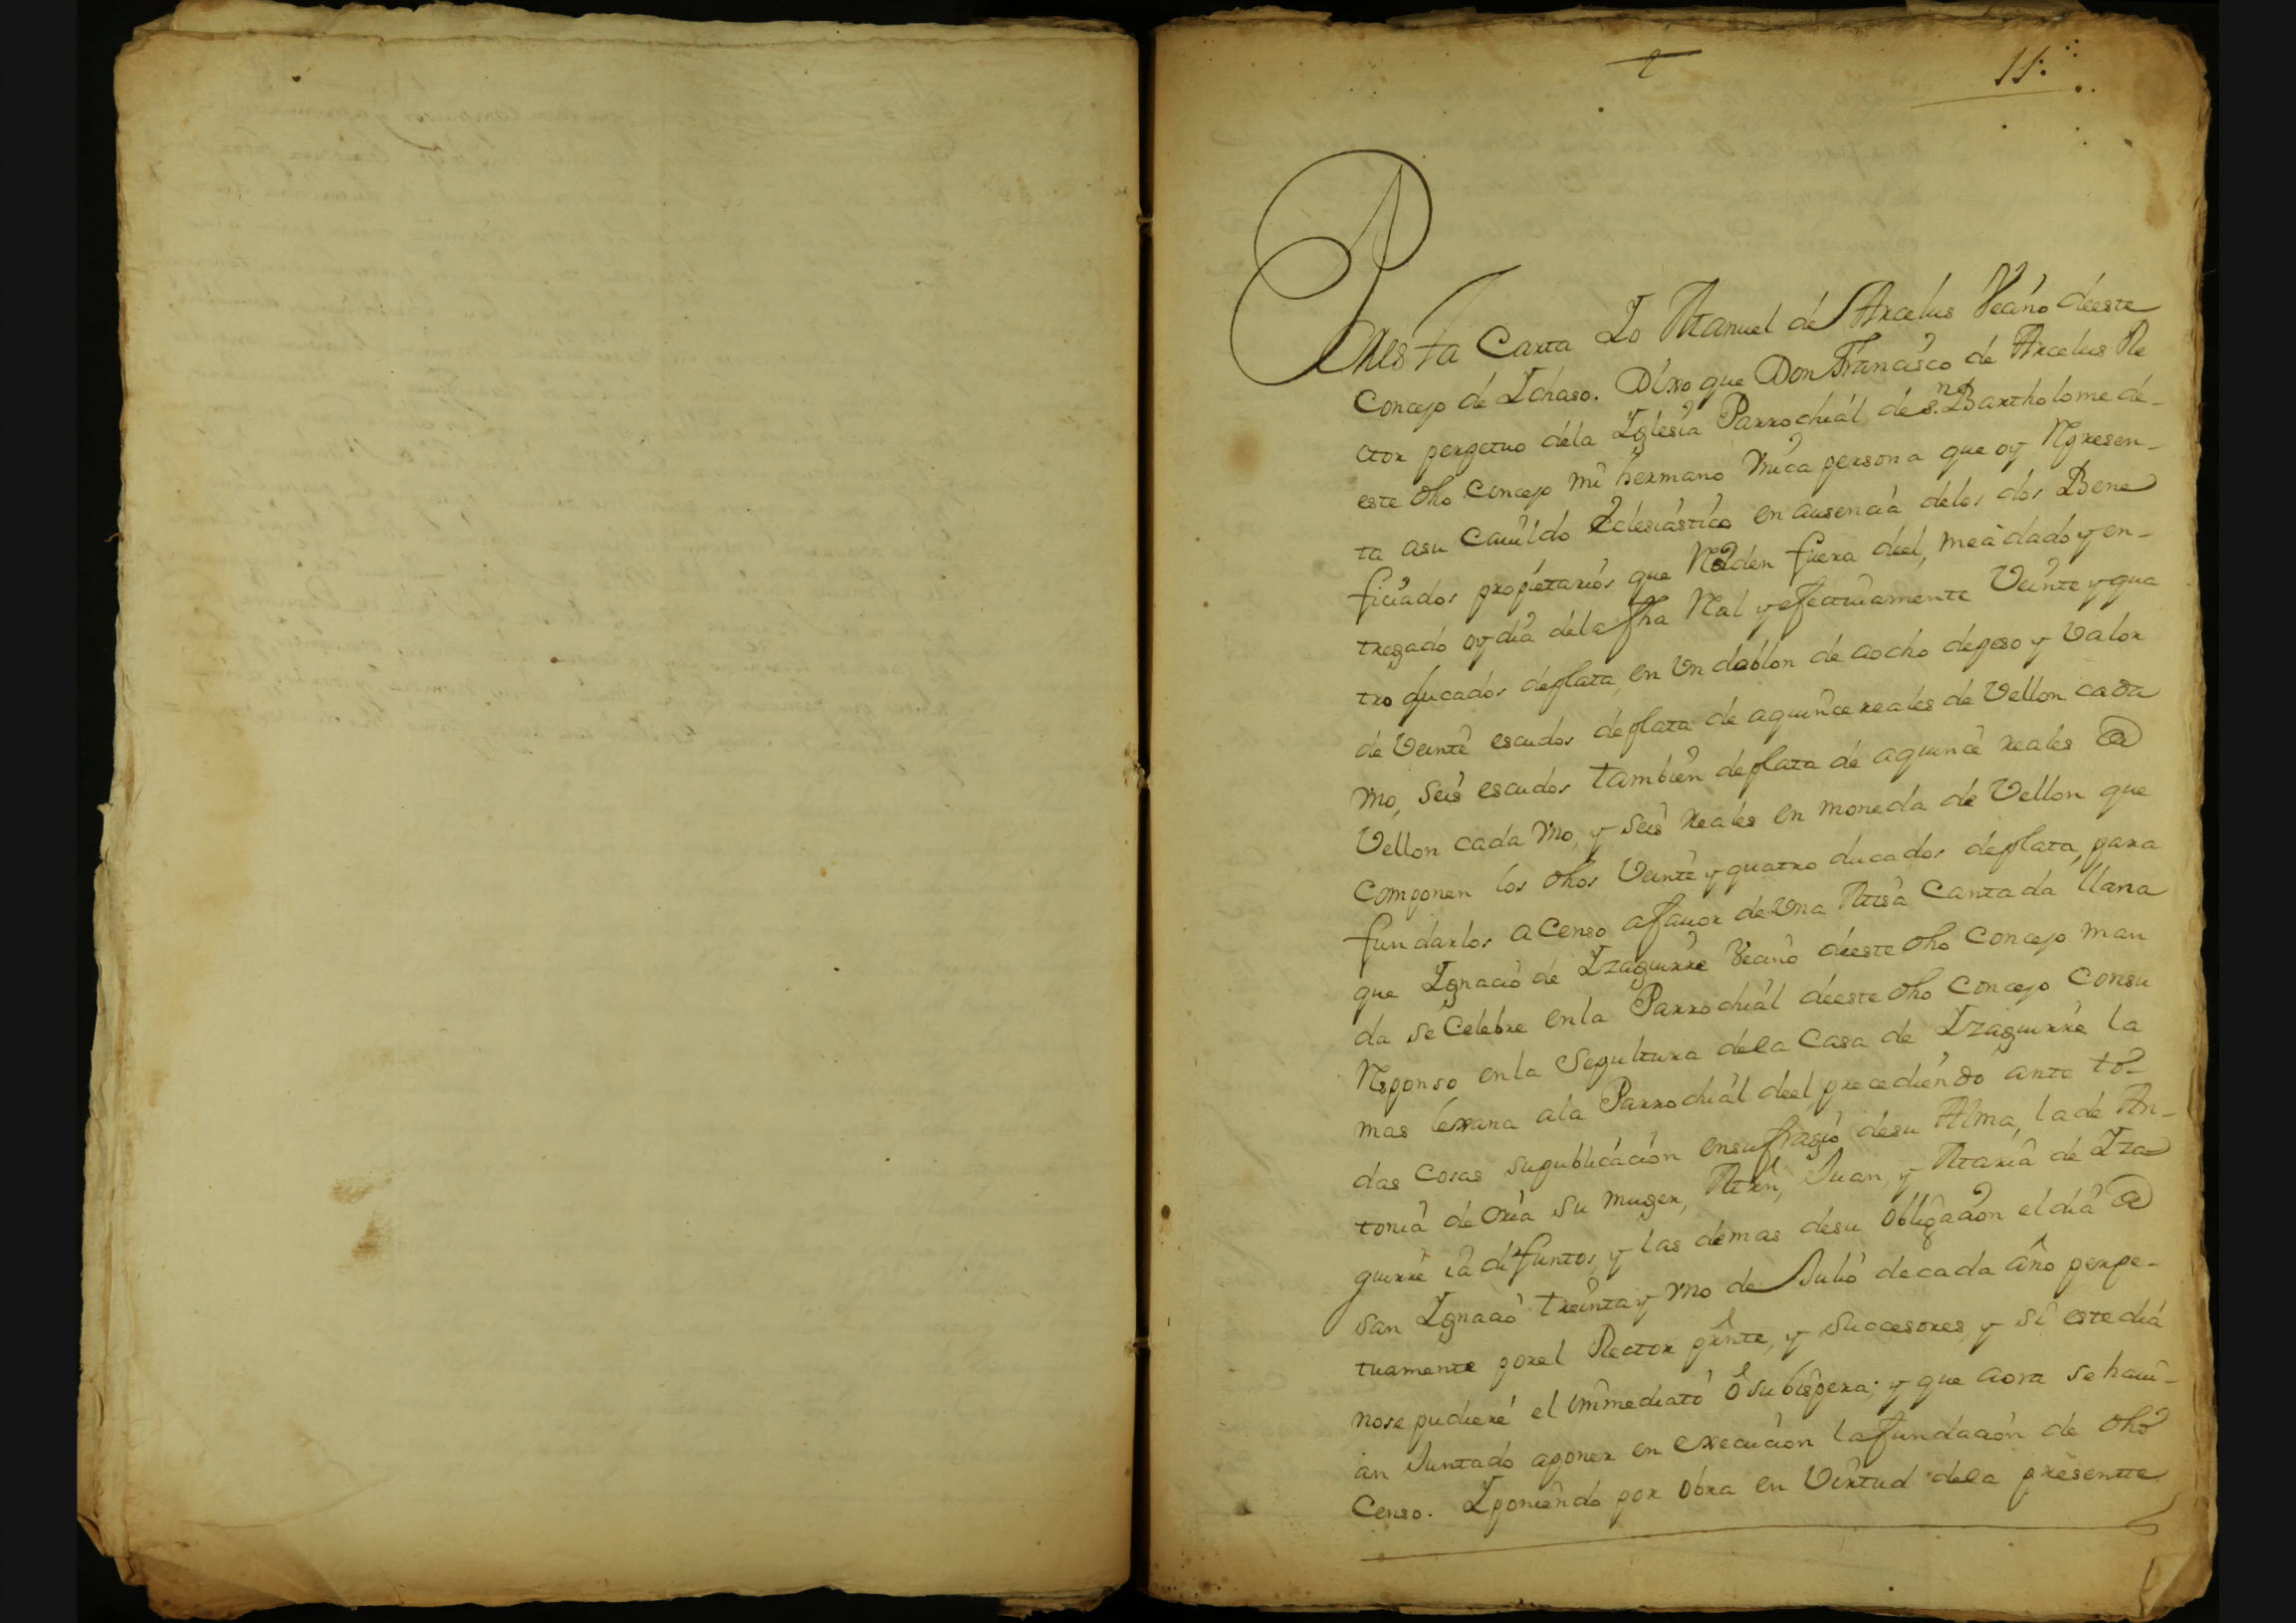 11.
En esta Carta Yo Manuel de Arcelus Vecino de este
Concejo de Ichaso. Dixo que Don Francisco de Arcelus Re
ctor perpetuo dela Iglesia Parrochiál de S.n Bartholome de-
este dho Concejo mi hermano Unica persona que oy Represen-
ta asu Cauildo Eclesiástico en ausencia delos dos Bene
ficiados propietarios que Residen fuera deel, me à dado y en-
tregado oy dia dela fha Real y efectiuamente Veinte y qua
tro ducados de plata, en Un doblon de aocho de peso y Valor
de Veinte escudos de plata de aquince reales de Vellon cada
Uno, Seis escudos tambien de plata de aquince reales @
Vellon cada Uno, y Seis Reales en moneda de Vellon que
componen los dhos Veinte y quatro ducados de plata, para
fundarlos a Censo afauor de Una Misa Cantada llana
que Ignacio de Izaguirre Vecino deeste dho Concejo man
da se Celebre enla Parrochiál deeste dho Concejo Consu
Responso enla Sepultura dela Casa de Izaguirre la
mas lexana ala Parrochiál deel, precediendo ante to-
das cosas supublicación ensufragio desu Alma, la de An-
tonia de Oria su muger, Mrn, Juan, y Maria de Iza
guirre ia difuntos, y las demas desu Obligacion el dia @
San Ignacio treinta y Uno de Julio de cada año perpe-
tuamente porel Rector prnte, y Succesores, y Si este dia
nose pudiere el immediato ó su bispera; y que aora se haui-
an Juntado aponer en execución la fundación de dho
Censo. Iponiendo por Obra en Virtud dela presentte